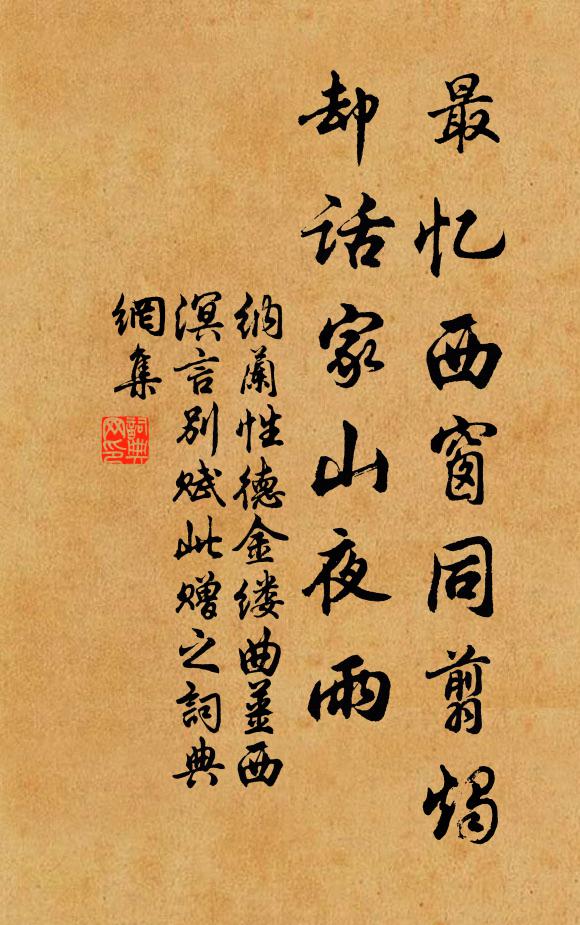 最忆西窗同剪烛
却话家山夜雨
納蘭性德金缕曲薑西
溟言别赋此赠之詞典
網集
詞典
网印